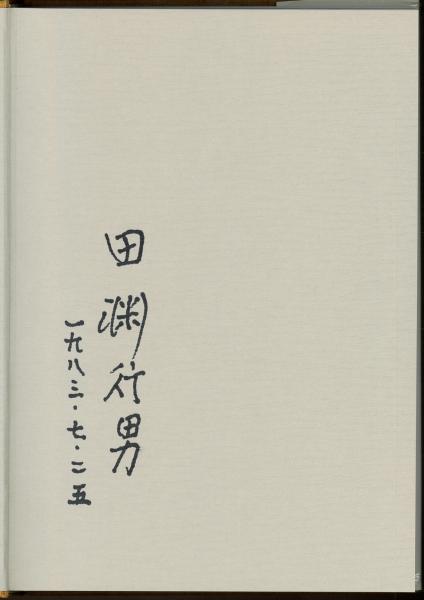 田渕行男
一九八三・七・二五